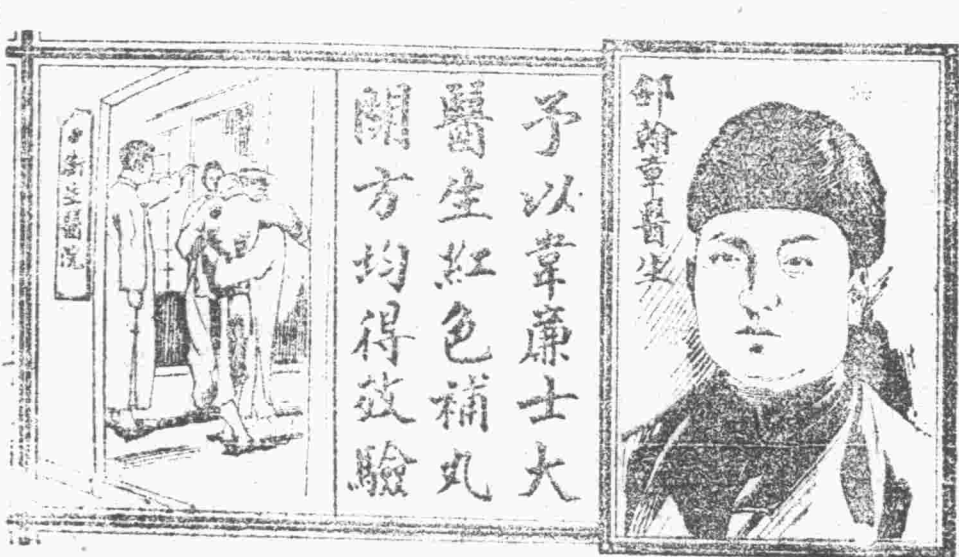 翰章醫生
予以韋廉士大
醫生紅色補丸
開方均得效驗